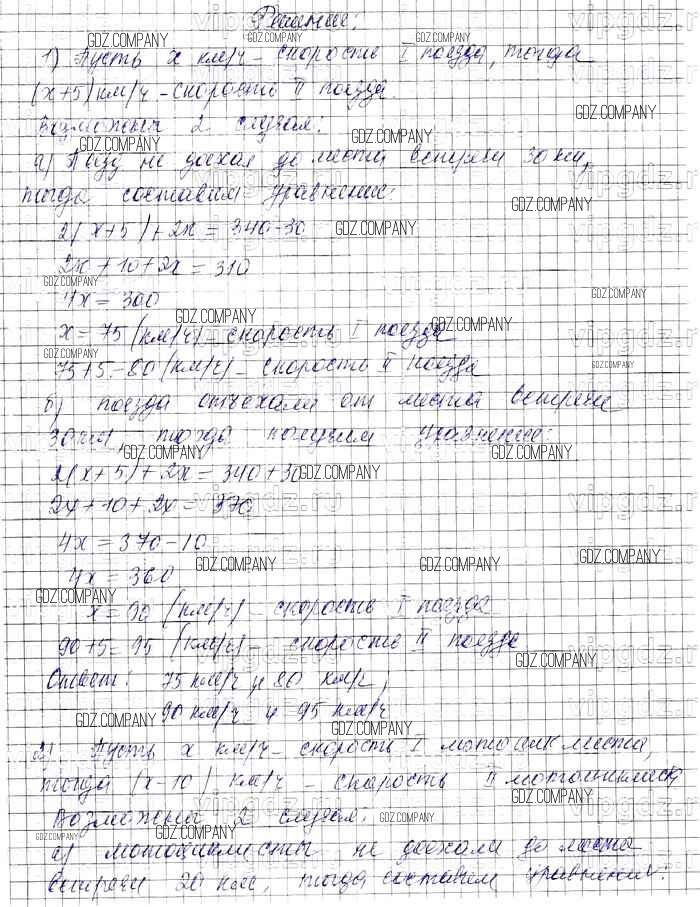 Решение:
1) Пусть x км/ч – скорость I поезда, тогда
(x+5) км/ч – скорость II поезда.
Возможены 2 случая:
а) Поезд не доехал до места встречи 30 км,
тогда составим уравнение:
2(x+5)+2x = 340-30
2x+10+2x = 310
4x = 300
x = 75 (км/ч) – скорость I поезда
75+5 = 80 (км/ч) – скорость II поезда
б) поезда отъехали от места встречи
30 км, тогда уравнение:
2(x+5)+2x = 340+30
2x+10+2x = 370
4x = 370-10
4x = 360
x = 90 (км/ч) – скорость I поезда
90+5 = 95 (км/ч) – скорость II поезда
Ответ: 75 км/ч и 80 км/ч,
90 км/ч и 95 км/ч
2) Пусть x км/ч – скорость I мотоциклиста,
тогда (x-10) км/ч – скорость II мотоциклиста
Возможены 2 случая:
а) мотоциклисты не доехали до места
встречи 20 км, тогда составим уравнение: